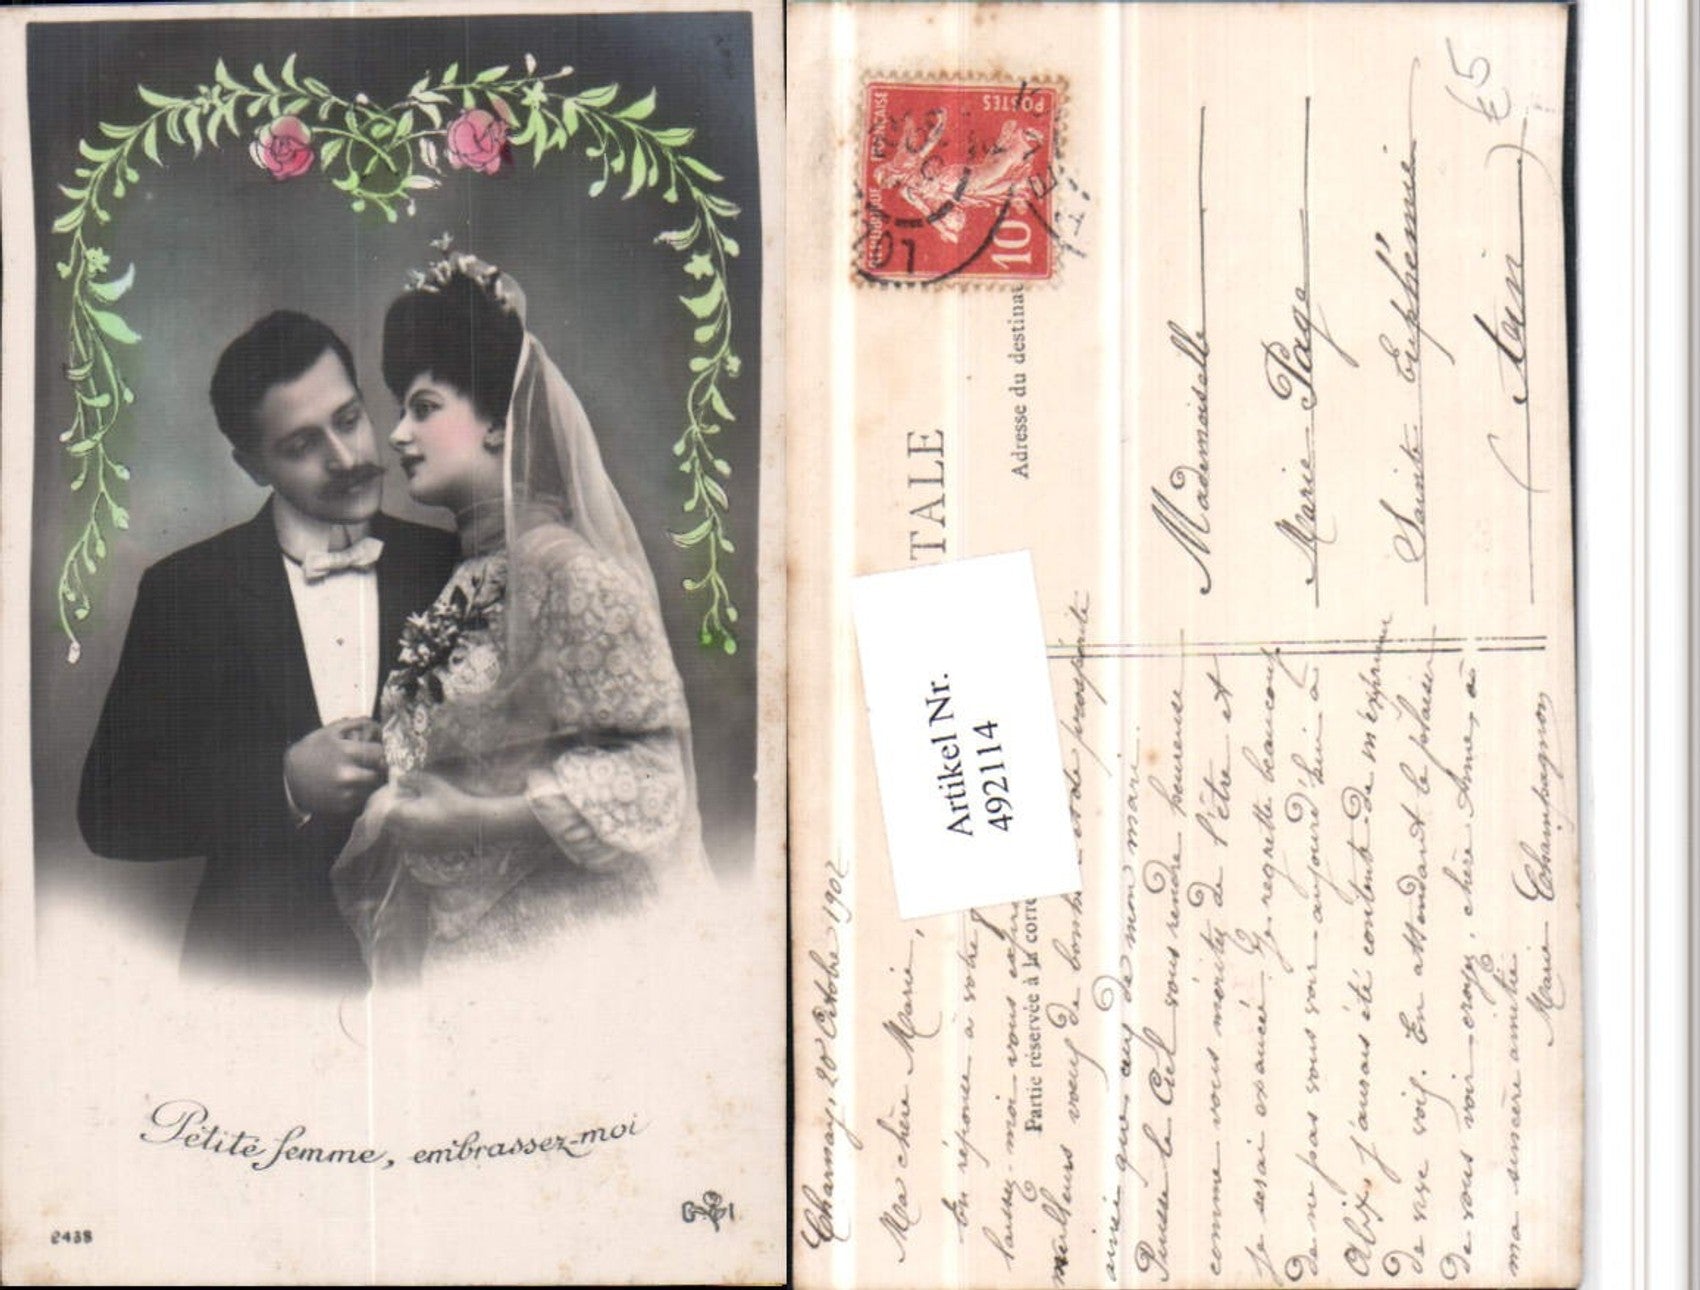 Petite femme, embrassez-moi
2438
POSTES
REPUBLIQUE FRANÇAISE
10
TALE
Adresse du destina
Partie réservée à la corre
Artikel Nr.
492114
£5
Mademoiselle
Marie Page
Sainte Euphémie
(Ain)
Charnay, 20 Octobre 1907
Ma chère Marie,
En réponse à votre
laissez-moi vous expri
meilleurs voeux de bonh et de prospérité
ainsi que ceux de mon mari.
Puisse le Ciel vous rendre heureuse
comme vous méritez de l'être et
je serai exaucée. Je regrette beaucoup
de ne pas vous voir aujourd'hui à
j'aurais été contente de m'exprimer
de vive voix. En attendant le plaisir
de vous voir croyez, chère Amie, à
ma sincère amitié
Marie Echampagnon